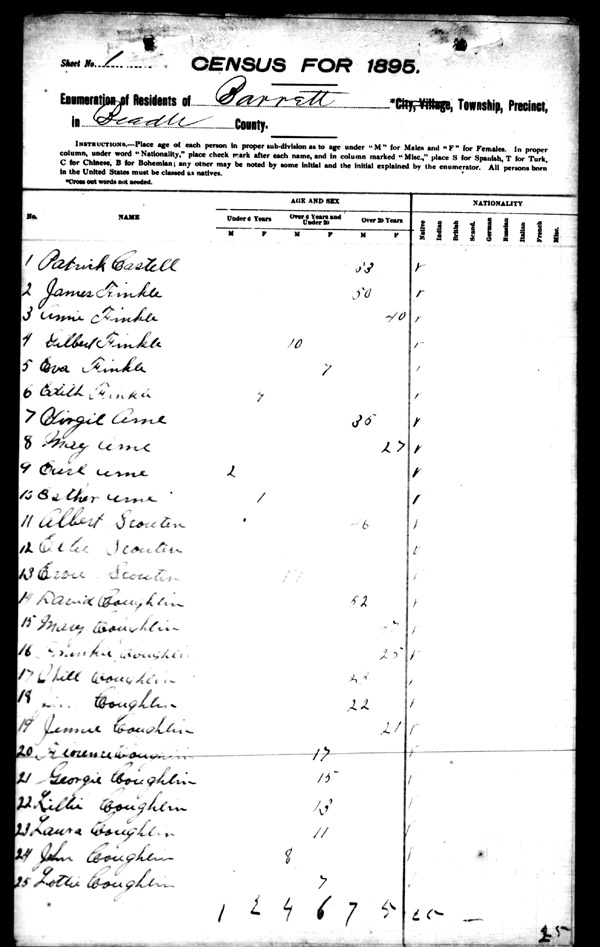 Sheet No. 1
CENSUS FOR 1895.
Enumeration of Residents of Barrett *City, Village, Township, Precinct,
in Beadle County.
INSTRUCTIONS.—Place age of each person in proper sub-division as to age under "M" for Males and "F" for Females. In proper
column, under word "Nationality," place check mark after each name, and in column marked "Misc.," place S for Spanish, T for Turk,
C for Chinese, B for Bohemian; any other may be noted by some initial and the initial explained by the enumerator. All persons born
in the United States must be classed as natives.
*Cross out words not needed.
No. NAME AGE AND SEX NATIONALITY
Under 6 Years Over 6 Years and Under 20 Over 20 Years
M F M F M F Native Indian British Scand. German Russian Italian French Misc.
1 Patrick Castell 33
2 James Finkle 50
3 Annie Finkle 40
4 Gilbert Finkle 10
5 Eva Finkle 7
6 Edith Finkle
7 Virgil Arne 35
8 May Arne 27
9 Arne 2
10 Esther Arne 1
11 Albert Scouten
12 Scouten
13 Scouten
14 David Coughlin 52
15 Mary Coughlin
16 Coughlin 25
17 Will Coughlin
18 Coughlin 22
19 Jennie Coughlin 21
20 Florence Coughlin 17
21 Georgie Coughlin 15
22 Lillie Coughlin 13
23 Laura Coughlin 11
24 John Coughlin 8
25 Lottie Coughlin 7
1 2 4 6 7 5 25 —
25